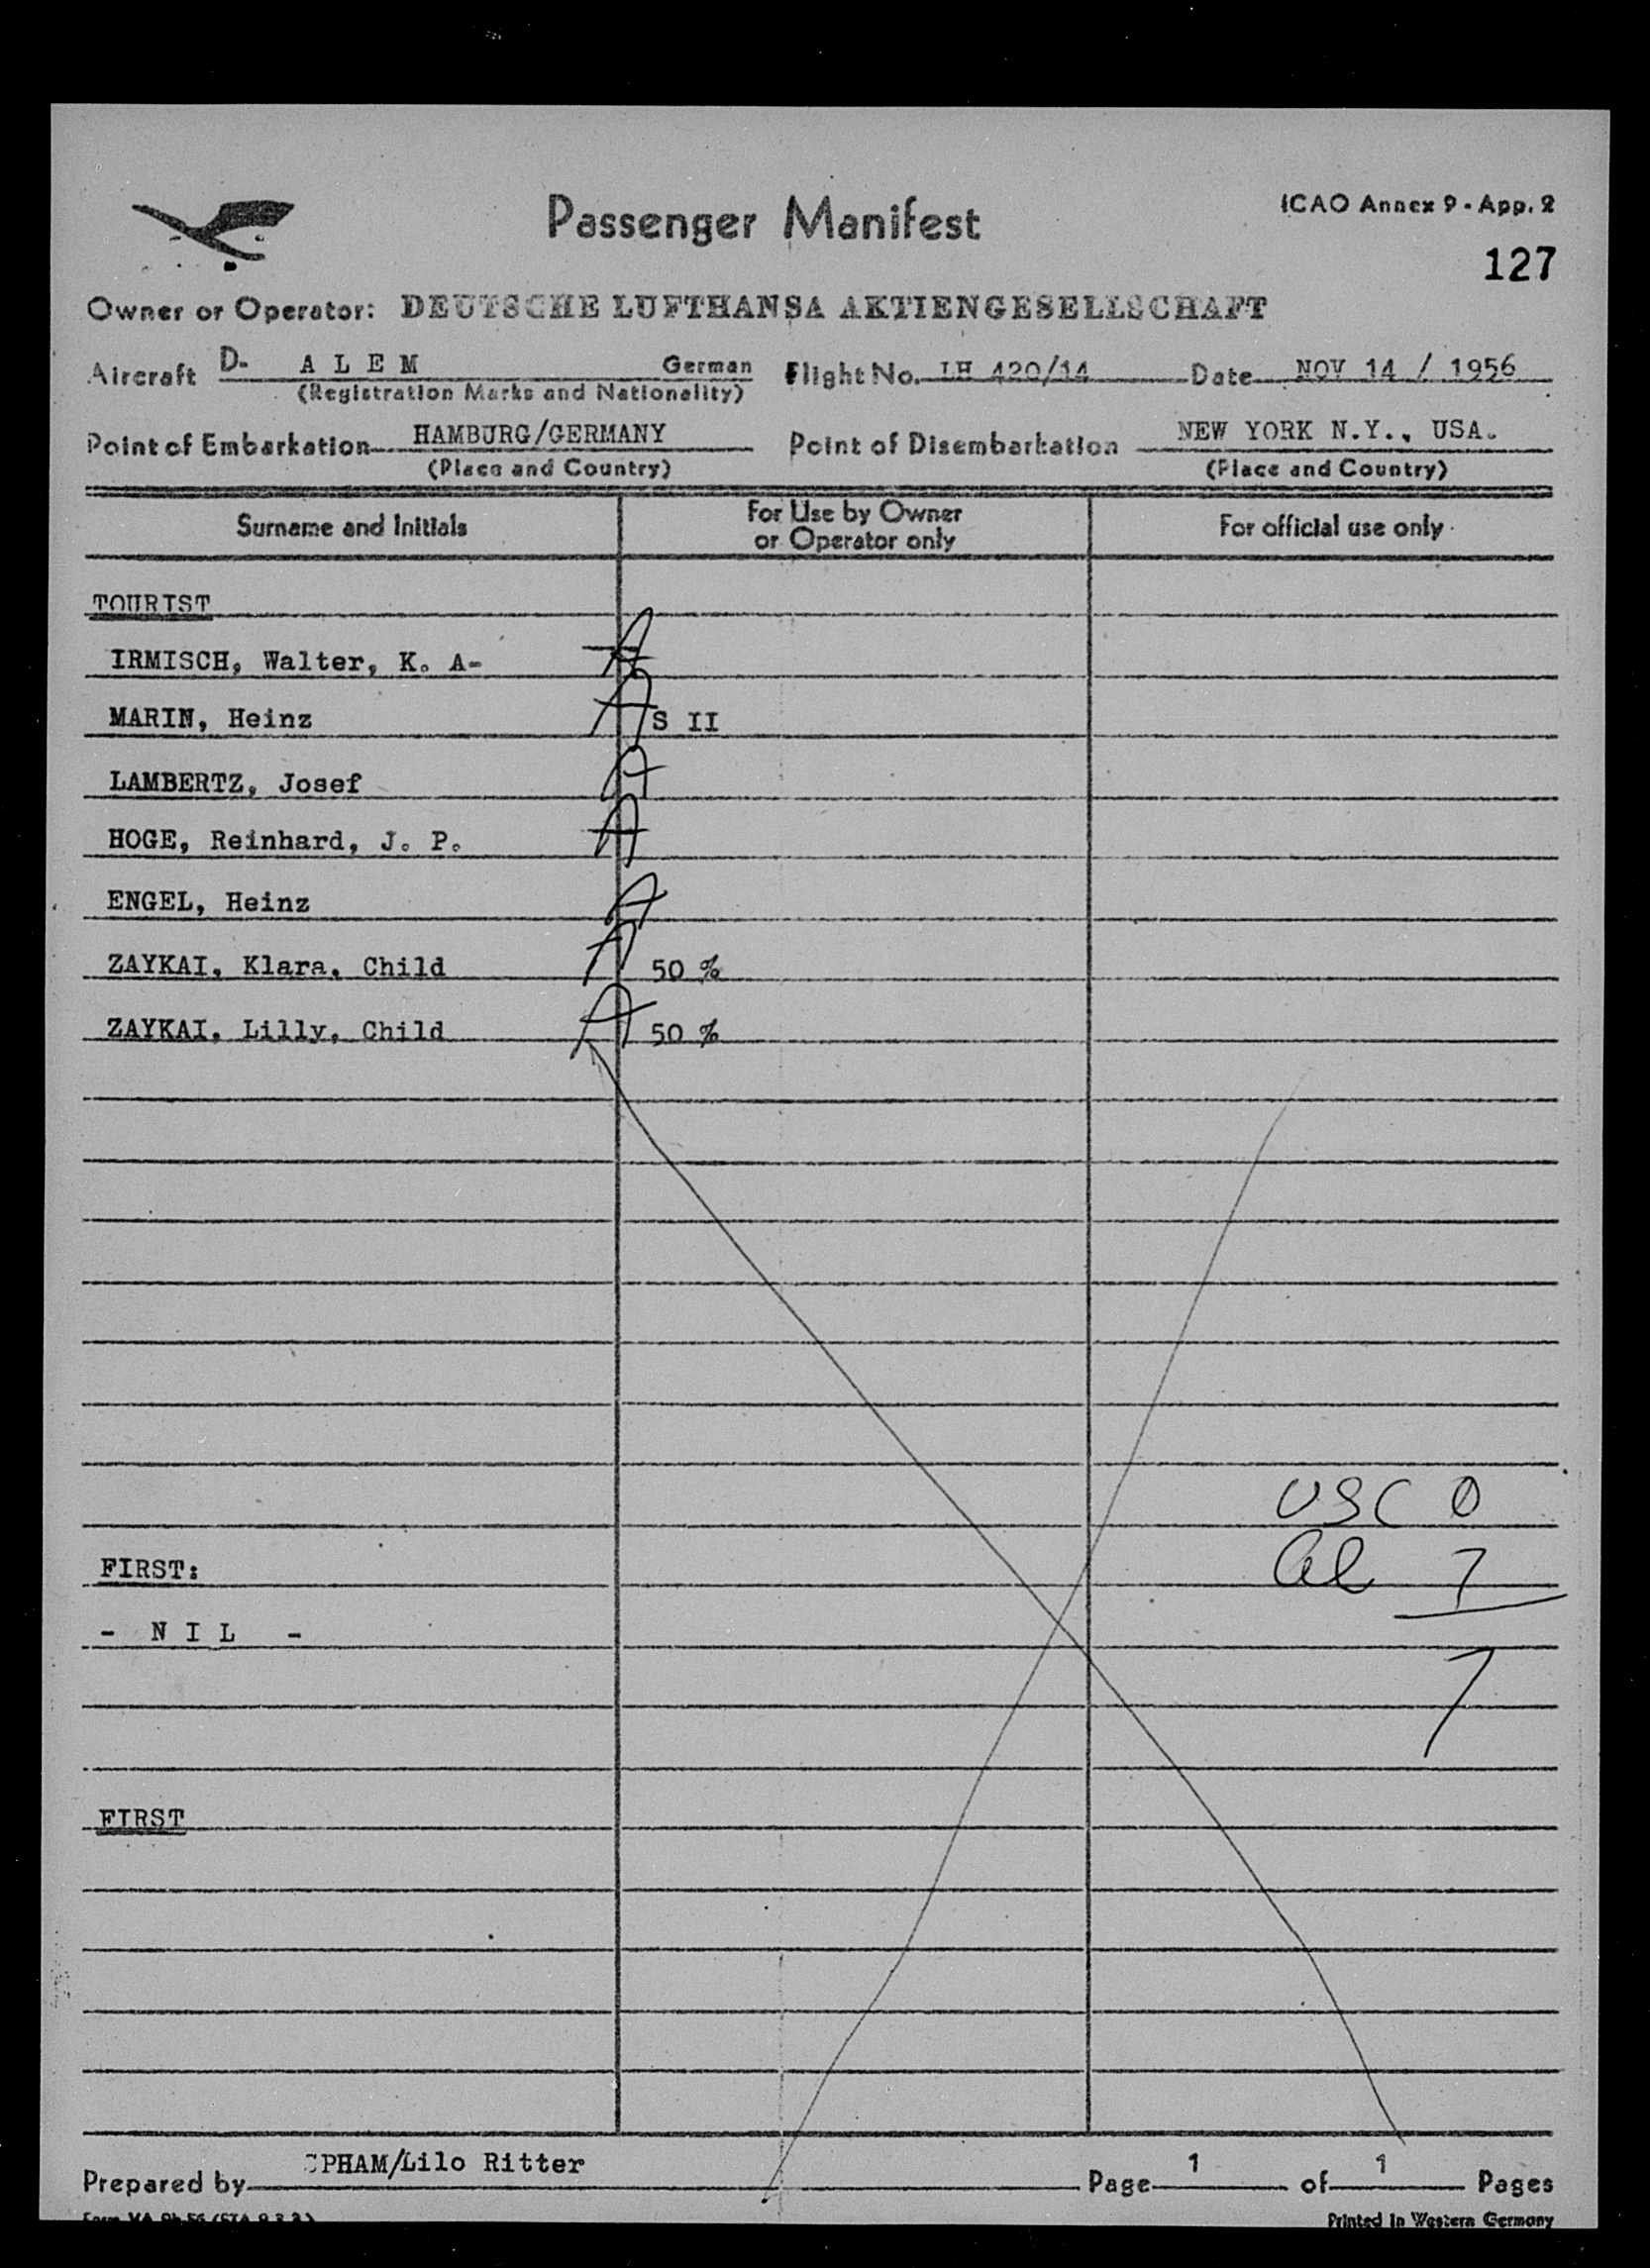 Passenger Manifest
ICAO Annex 9 - App. 2
127
Owner or Operator: DEUTSCHE LUFTHANSA AKTIENGESELLSCHAFT
Aircraft D- A L E M German Flight No. LH 420/14 Date NOV 14 / 1956
(Registration Marks and Nationality)
Point of Embarkation HAMBURG/GERMANY Point of Disembarkation NEW YORK N.Y., USA.
(Place and Country) (Place and Country)
Surname and Initials For Use by Owner or Operator only For official use only
TOURIST
IRMISCH, Walter, K. A- A
MARIN, Heinz A S II
LAMBERTZ, Josef A
HOGE, Reinhard, J. P. A
ENGEL, Heinz A
ZAYKAI, Klara, Child A 50 %
ZAYKAI, Lilly, Child A 50 %
USC 0
FIRST: al 7
- N I L -
7
FIRST
Prepared by PHAM/Lilo Ritter Page 1 of 1 Pages
Printed in Western Germany